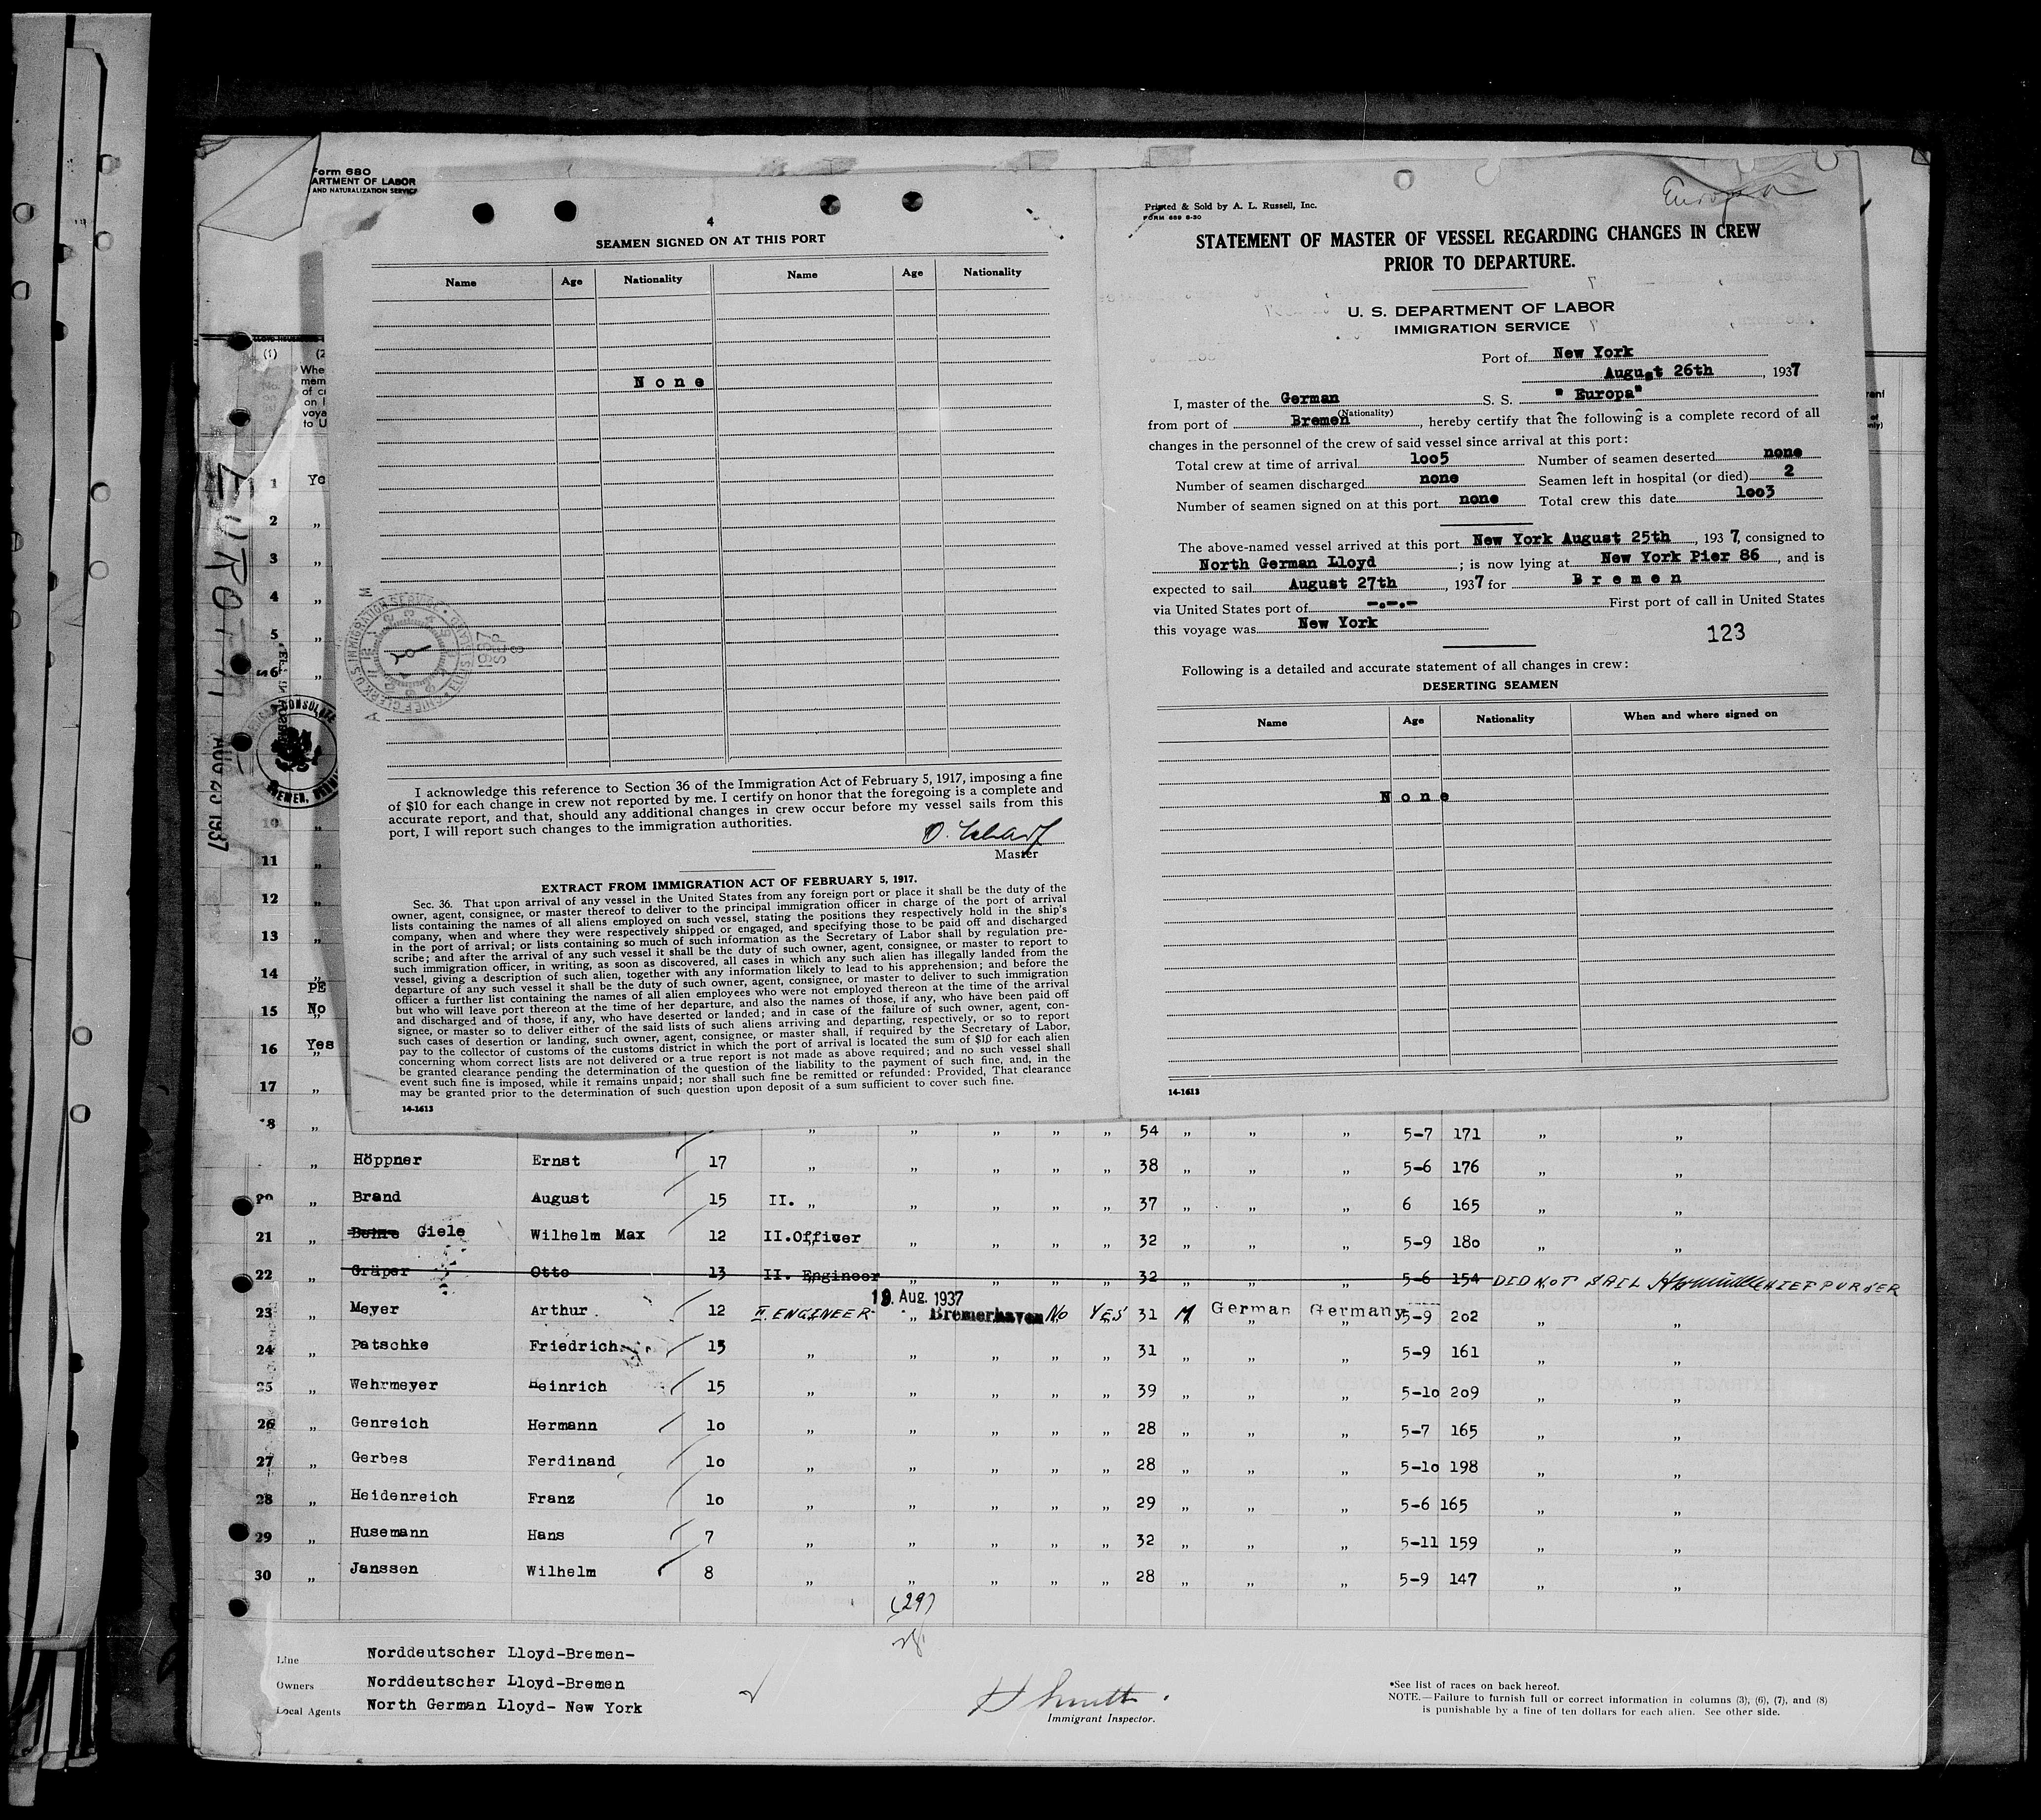 Form 680
ARTMENT OF LABOR
AND NATURALIZATION SERVICE
4
SEAMEN SIGNED ON AT THIS PORT
Name Age Nationality Name Age Nationality
None
I acknowledge this reference to Section 36 of the Immigration Act of February 5, 1917, imposing a fine
of $10 for each change in crew not reported by me. I certify on honor that the foregoing is a complete and
accurate report, and that, should any additional changes in crew occur before my vessel sails from this
port, I will report such changes to the immigration authorities.
Master
EXTRACT FROM IMMIGRATION ACT OF FEBRUARY 5, 1917.
Sec. 36. That upon arrival of any vessel in the United States from any foreign port or place it shall be the duty of the
owner, agent, consignee, or master thereof to deliver to the principal immigration officer in charge of the port of arrival
lists containing the names of all aliens employed on such vessel, stating the positions they respectively hold in the ship's
company, when and where they were respectively shipped or engaged, and specifying those to be paid off and discharged
in the port of arrival; or lists containing so much of such information as the Secretary of Labor shall by regulation pre-
scribe; and after the arrival of any such vessel it shall be the duty of such owner, agent, consignee, or master to report to
such immigration officer, in writing, as soon as discovered, all cases in which any such alien has illegally landed from the
vessel, giving a description of such alien, together with any information likely to lead to his apprehension; and before the
departure of any such vessel it shall be the duty of such owner, agent, consignee, or master to deliver to such immigration
officer a further list containing the names of all alien employees who were not employed thereon at the time of the arrival
but who will leave port thereon at the time of her departure, and also the names of those, if any, who have been paid off
and discharged and of those, if any, who have deserted or landed; and in case of the failure of such owner, agent, con-
signee, or master so to deliver either of the said lists of such aliens arriving and departing, respectively, or so to report
such cases of desertion or landing, such owner, agent, consignee, or master shall, if required by the Secretary of Labor,
pay to the collector of customs of the customs district in which the port of arrival is located the sum of $10 for each alien
concerning whom correct lists are not delivered or a true report is not made as above required; and no such vessel shall
be granted clearance pending the determination of the question of the liability to the payment of such fine, and, in the
event such fine is imposed, while it remains unpaid; nor shall such fine be remitted or refunded: Provided, That clearance
may be granted prior to the determination of such question upon deposit of a sum sufficient to cover such fine.
14-1613
Europa
Printed & Sold by A. L. Russell, Inc.
FORM 689 8-30
STATEMENT OF MASTER OF VESSEL REGARDING CHANGES IN CREW
PRIOR TO DEPARTURE.
U. S. DEPARTMENT OF LABOR
IMMIGRATION SERVICE
Port of New York
August 26th, 1937
I, master of the German S. S. "Europa"
(Nationality)
from port of Bremen, hereby certify that the following is a complete record of all
changes in the personnel of the crew of said vessel since arrival at this port:
Total crew at time of arrival 1oo5 Number of seamen deserted none
Number of seamen discharged none Seamen left in hospital (or died) 2
Number of seamen signed on at this port none Total crew this date 1oo3
The above-named vessel arrived at this port New York August 25th, 1937, consigned to
North German Lloyd; is now lying at New York Pier 86, and is
expected to sail August 27th, 1937 for Bremen
via United States port of -.-.- First port of call in United States
this voyage was New York
123
Following is a detailed and accurate statement of all changes in crew:
DESERTING SEAMEN
Name Age Nationality When and where signed on
None
14-1613
(1)
Whe
mem
of cr
on l
voya
to U
EUROPA
AUG 25 1937
1 Ye
2 „
3 „
4 „
5 „
6 „
10 „
11 „
12 „
13 „
14 „
PE
15 No
16 Yes
17 „
18 „ „ „ „ „ „ 54 „ „ „ 5-7 171 „ „
„ Höppner Ernst 17 „ „ „ „ „ 38 „ „ „ 5-6 176 „ „
20 „ Brand August 15 II. „ „ „ „ „ 37 „ „ „ 6 165 „ „
21 „ Giele Wilhelm Max 12 II.Officer „ „ „ „ 32 „ „ „ 5-9 18o „ „
22 „ Gräper Otto 13 II. Engineer „ „ „ „ 32 „ „ „ 5-6 154 DID NOT SAIL CHIEF PURSER
19. Aug. 1937
23 „ Meyer Arthur 12 II. ENGINEER „ Bremerhaven No YES 31 M German Germany 5-9 202 „ „
24 „ Patschke Friedrich 15 „ „ „ „ „ 31 „ „ „ 5-9 161 „ „
25 „ Wehrmeyer Heinrich 15 „ „ „ „ „ 39 „ „ „ 5-1o 209 „ „
26 „ Genreich Hermann 1o „ „ „ „ „ 28 „ „ „ 5-7 165 „ „
27 „ Gerbes Ferdinand 1o „ „ „ „ „ 28 „ „ „ 5-1o 198 „ „
28 „ Heidenreich Franz 1o „ „ „ „ „ 29 „ „ „ 5-6 165 „ „
29 „ Husemann Hans 7 „ „ „ „ „ 32 „ „ „ 5-11 159 „ „
30 „ Janssen Wilhelm 8 „ „ „ „ „ 28 „ „ „ 5-9 147 „ „
(29)
Line Norddeutscher Lloyd-Bremen-
Owners Norddeutscher Lloyd-Bremen
Local Agents North German Lloyd- New York
Immigrant Inspector.
*See list of races on back hereof.
NOTE.—Failure to furnish full or correct information in columns (3), (6), (7), and (8)
is punishable by a fine of ten dollars for each alien. See other side.